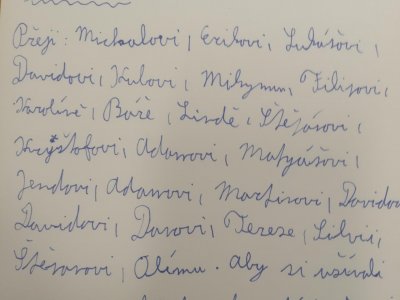 Přeji: Michalovi, Erikovi, Lukášovi,
Davidovi, Filipovi,
Karolíně, Báře, Lindě, Štěpánovi,
Kryštofovi, Adamovi, Matyášovi,
Jendovi, Adamovi, Martinovi, Davidov
Davidovi, Danovi, Tereze, Silvii,
Olimu. aby si užívali